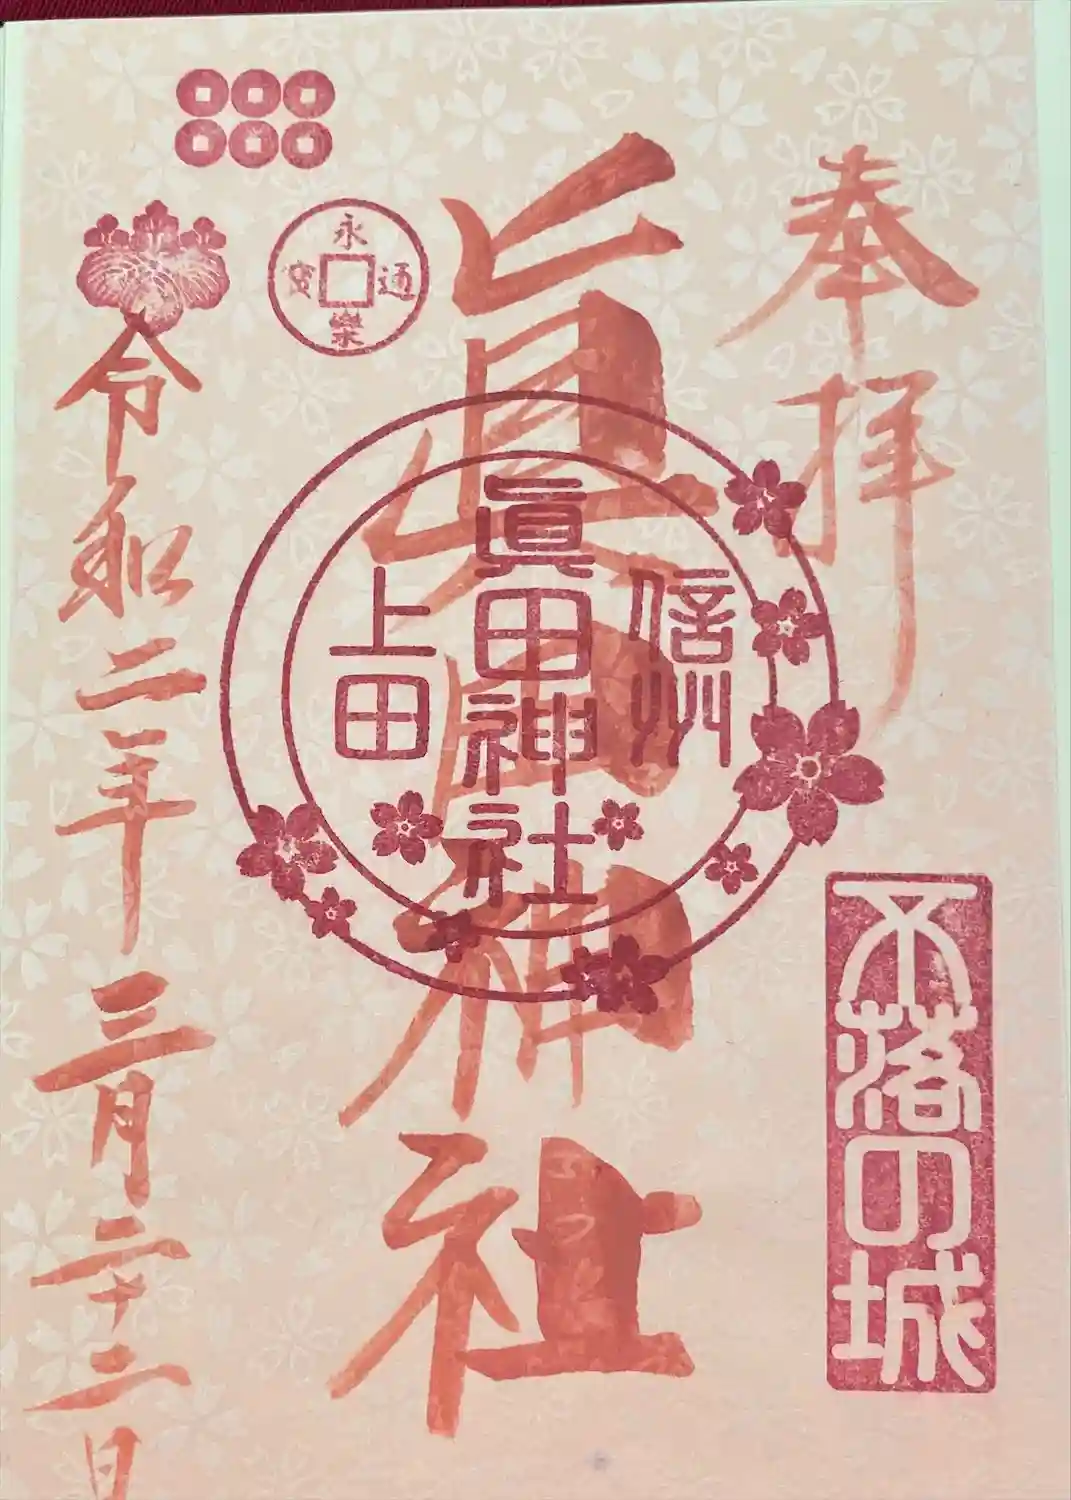 奉拝
不落の城
眞田神社
信州
眞田神社
上田
永樂通寳
令和二年三月二十二日